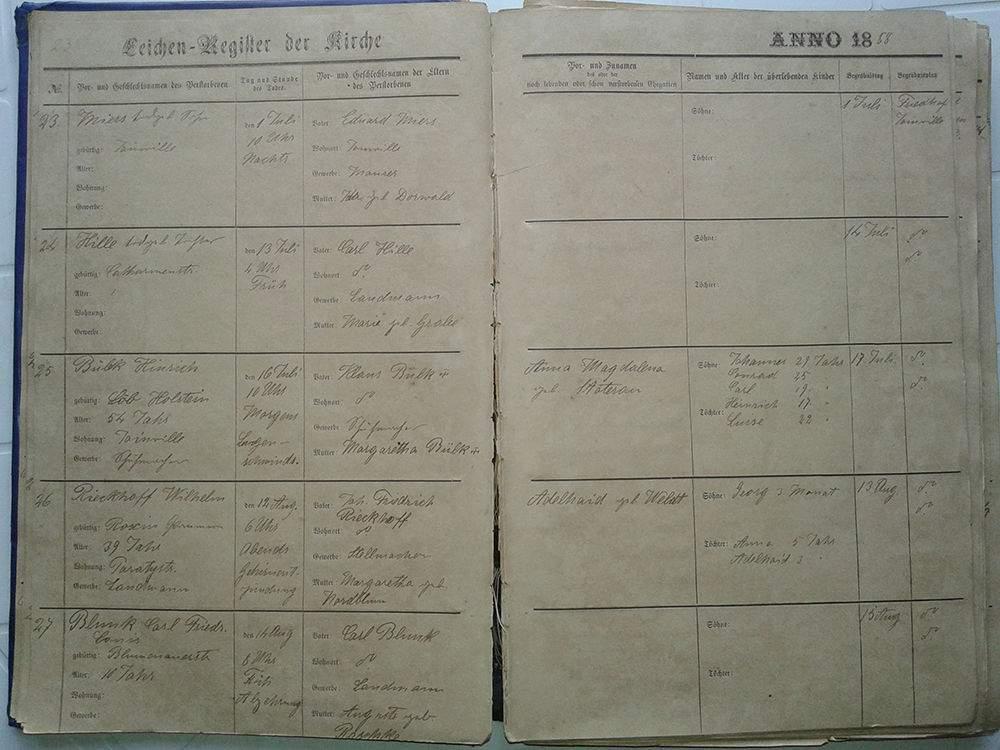 Leichen-Register der Kirche
ANNO 1888
No.
Vor- und Geschlechtsnamen des Verstorbenen
Tag und Stunde
des Todes.
Vor- und Geschlechtsnamen der Eltern
des Verstorbenen
Vor- und Zunamen
des oder der
noch lebenden oder schon verstorbenen Ehegatten
Namen und Alter der überlebenden Kinder
Begräbnißtag
Begräbnißplatz
23
Miers todtgeb. Sohn
gebürtig: Joinville
Alter:
Wohnung:
Gewerbe:
den 1 Juli
10 Uhr
Nachts
Vater: Eduard Miers
Wohnort: Joinville
Gewerbe: Maurer
Mutter: geb. Dorwald
Söhne:
Töchter:
1 Juli
Friedhof
Joinville
24
Hille todtgeb. Tochter
gebürtig: Catharinenstr.
Alter:
Wohnung:
Gewerbe:
den 13 Juli
4 Uhr
Früh
Vater: Carl Hille
Wohnort: do
Gewerbe: Landmann
Mutter: Marie geb.
Söhne:
Töchter:
14 Juli
do
do
25
Bülk Hinrich
gebürtig: Holstein
Alter: 54 Jahr
Wohnung: Joinville
Gewerbe: Schuhmacher
den 16 Juli
10 Uhr
Morgens
Lungen-
schwinds.
Vater: Klaus Bülk +
Wohnort: do
Gewerbe: Schuhmacher
Mutter: Margaretha Bülk +
Anna Magdalena
geb.
Söhne: Johannes 29 Jahr
Conrad 25 "
Carl 19 "
Heinrich 17 "
Töchter: Luise 22 "
17 Juli
do
do
26
Rieckhoff Wilhelm
gebürtig:
Alter: 39 Jahr
Wohnung:
Gewerbe: Landmann
den 12 Aug.
6 Uhr
Abends
Gehirnent-
zündung
Vater: Joh. Friedrich
Rieckhoff
Wohnort: do
Gewerbe: Stellmacher
Mutter: Margaretha geb.
Nordblum
Adelhaid geb.
Söhne: Georg 3 Monat
Töchter: Anna 5 Jahr
Adelhaid 3 "
13 Aug
do
do
27
Blunk Carl Friedr.
Louis
gebürtig: Blumenauerstr
Alter: 10 Jahr
Wohnung:
Gewerbe:
den 14 Aug
8 Uhr
Früh
Abzehrung
Vater: Carl Blunk
Wohnort: do
Gewerbe: Landmann
Mutter: Auguste geb.
Raschke
Söhne:
Töchter:
15 Aug
do
do